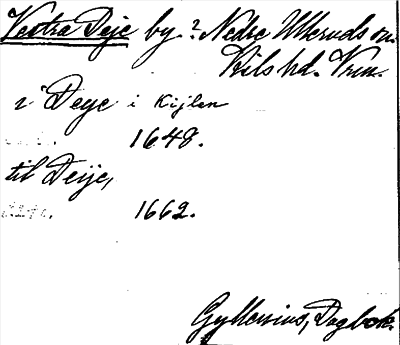 Vestra Deje by. ? Nedre Ulleruds sn.
Kils hd. Vrm.
i Deye i Kijlen
1648.
til Deije,
1662.
Gyllenius, Dagbok.